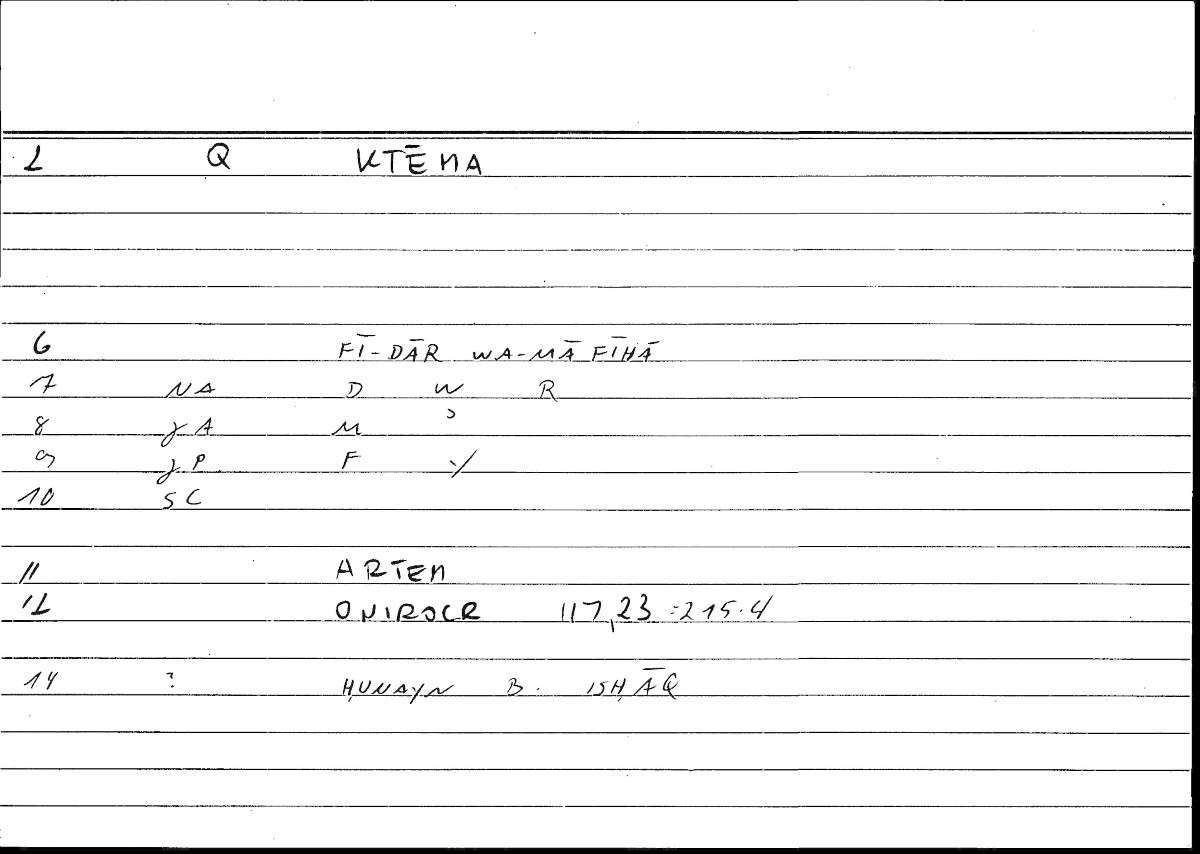 1 Q KTĒMA
6 FĪ-DĀR WA-MĀ FĪHĀ
7 NA D W R
8 γA M ʾ
9 γP F y
10 SC
11 ARTEM
12 ONIROCR 117,23 = 215.4
14 ? ḤUNAYN B. ISḤĀQ